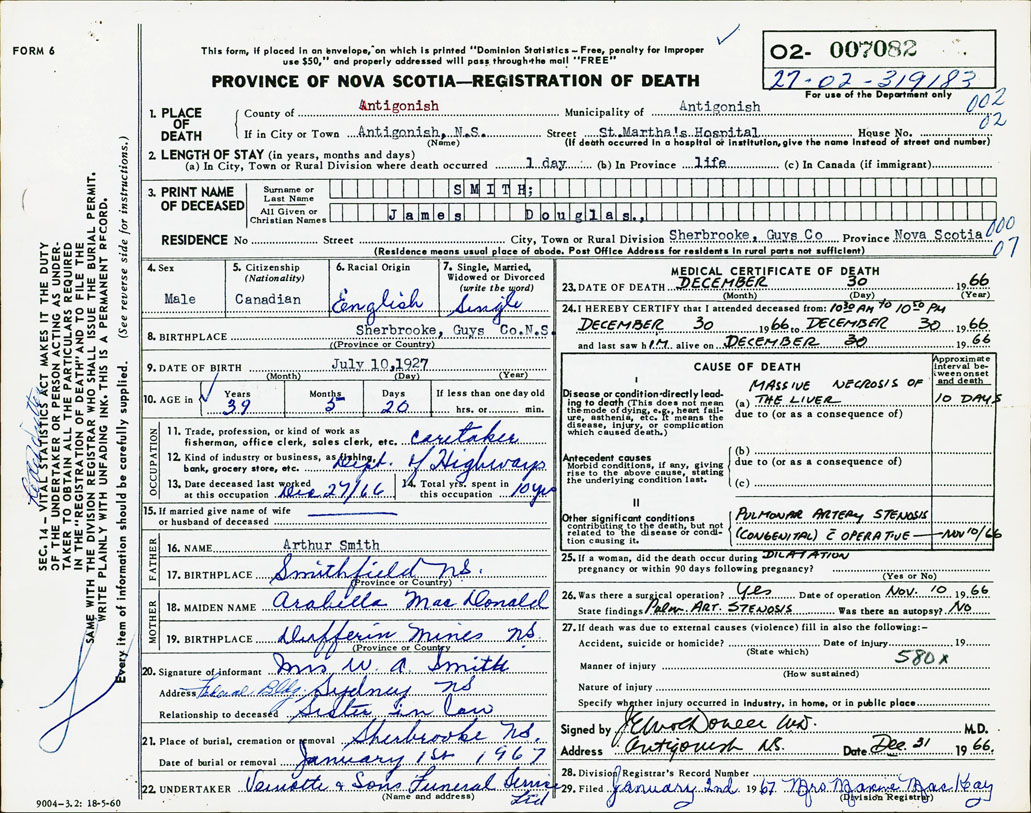 FORM 6
This form, if placed in an envelope, on which is printed "Dominion Statistics – Free, penalty for improper
use $50," and properly addressed will pass through the mail "FREE"
PROVINCE OF NOVA SCOTIA—REGISTRATION OF DEATH
02- 007082
27-02-319183
For use of the Department only
002
02
1. PLACE OF DEATH
County of Antigonish Municipality of Antigonish
If in City or Town Antigonish, N.S. Street St.Martha's Hospital House No.
(Name) (If death occurred in a hospital or institution, give the name instead of street and number)
2. LENGTH OF STAY (in years, months and days)
(a) In City, Town or Rural Division where death occurred 1 day (b) In Province life (c) In Canada (if immigrant)
3. PRINT NAME OF DECEASED
Surname or Last Name SMITH;
All Given or Christian Names James Douglas.,
RESIDENCE No Street City, Town or Rural Division Sherbrooke, Guys Co Province Nova Scotia
000
07
(Residence means usual place of abode. Post Office Address for residents in rural parts not sufficient)
4. Sex
Male
5. Citizenship
(Nationality)
Canadian
6. Racial Origin
English
7. Single, Married,
Widowed or Divorced
(write the word)
Single
8. BIRTHPLACE Sherbrooke, Guys Co.N.S.
(Province or Country)
9. DATE OF BIRTH July 10,1927
(Month) (Day) (Year)
10. AGE in
Years
39
Months
5
Days
20
If less than one day old
hrs. or min.
OCCUPATION
11. Trade, profession, or kind of work as
fisherman, office clerk, sales clerk, etc. caretaker
12. Kind of industry or business, as fishing,
bank, grocery store, etc. Dept. of Highways
13. Date deceased last worked
at this occupation Dec 27/66
14. Total yrs. spent in
this occupation 10 yrs
15. If married give name of wife
or husband of deceased
FATHER
16. NAME Arthur Smith
17. BIRTHPLACE Smithfield NS.
(Province or Country)
MOTHER
18. MAIDEN NAME Arabella MacDonald
19. BIRTHPLACE Dufferin Mines NS.
(Province or Country)
20. Signature of informant Mrs W. A. Smith
Address Federal Bldg. Sydney NS
Relationship to deceased Sister in law
21. Place of burial, cremation or removal Sherbrooke NS.
Date of burial or removal January 1st 1967
22. UNDERTAKER & Sons Funeral Service Ltd
(Name and address)
9004-3.2: 18-5-60
MEDICAL CERTIFICATE OF DEATH
23. DATE OF DEATH DECEMBER 30 1966
(Month) (Day) (Year)
24. I HEREBY CERTIFY that I attended deceased from: 10:30 AM to 10:50 PM
DECEMBER 30 1966 to DECEMBER 30 1966
and last saw hIM alive on DECEMBER 30 1966
CAUSE OF DEATH
Approximate
interval be-
tween onset
and death
I
Disease or condition directly lead-
ing to death (This does not mean
the mode of dying, e.g., heart fail-
ure, asthenia, etc. It means the
disease, injury, or complication
which caused death.)
(a) MASSIVE NECROSIS OF
THE LIVER 10 DAYS
due to (or as a consequence of)
Antecedent causes
Morbid conditions, if any, giving
rise to the above cause, stating
the underlying condition last.
(b)
due to (or as a consequence of)
(c)
II
Other significant conditions
contributing to the death, but not
related to the disease or condi-
tion causing it.
PULMONARY ARTERY STENOSIS
(CONGENITAL) c̄ OPERATIVE — NOV 10/66
DILATATION
25. If a woman, did the death occur during
pregnancy or within 90 days following pregnancy?
(Yes or No)
26. Was there a surgical operation? Yes Date of operation NOV. 10 1966
State findings Pulm. ART. STENOSIS Was there an autopsy? NO
27. If death was due to external causes (violence) fill in also the following:–
Accident, suicide or homicide? Date of injury 19
(State which)
580x
Manner of injury
(How sustained)
Nature of injury
Specify whether injury occurred in industry, in home, or in public place
Signed by M.D.
Address Antigonish NS. Date Dec. 31 1966.
28. Division Registrar's Record Number
29. Filed January 2nd 1967 Mrs Maxine MacKay
(Division Registrar)
SEC. 14– VITAL STATISTICS ACT MAKES IT THE DUTY
OF THE UNDERTAKER OR PERSON ACTING AS UNDER-
TAKER TO OBTAIN ALL THE PARTICULARS REQUIRED
IN THE "REGISTRATION OF DEATH" AND TO FILE THE
SAME WITH THE DIVISION REGISTRAR WHO SHALL ISSUE THE BURIAL PERMIT.
WRITE PLAINLY WITH UNFADING INK. THIS IS A PERMANENT RECORD.
Every item of information should be carefully supplied. (See reverse side for instructions.)